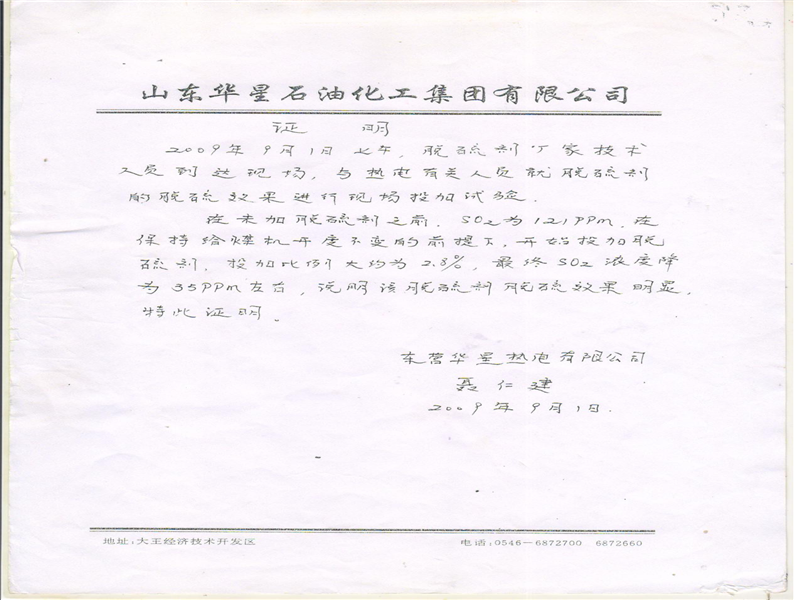 山东华星石油化工集团有限公司
证 明
2009年9月1日上午，脱硫剂厂家技术
人员到达现场，与热电有关人员就脱硫剂
的脱硫效果进行现场投加试验。
在未加脱硫剂之前，SO₂为121PPm，在
保持给煤机开度不变的前提下，开始投加脱
硫剂，投加比例大约为2.8%，最终SO₂浓度降
为35PPm左右，说明该脱硫剂脱硫效果明显，
特此证明。
东营华星热电有限公司
聂仁建
2009年9月1日.
地址:大王经济技术开发区 电话:0546-6872700 6872660